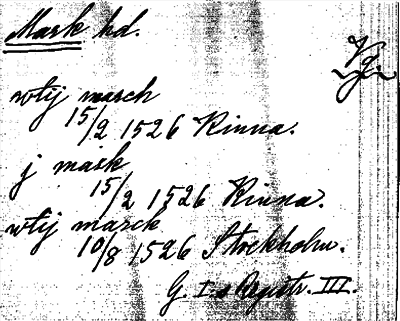 Mark hd.
Vg.
wtij march
15/2 1526 Kinna.
j mark
15/2 1526 Kinna.
wtij marck
10/8 1526 Stockholm.
G. I:s Registr. III.